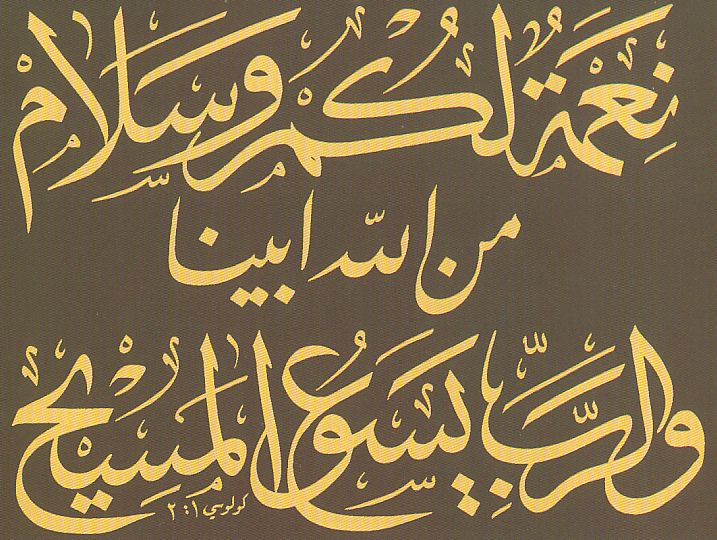 نِعْمَةٌ لَكُمْ وَسَلَامٌ
من الله ابينا
وَالرَّبِّ يَسُوعَ المَسِيحِ
كولوسي ١ : ٢